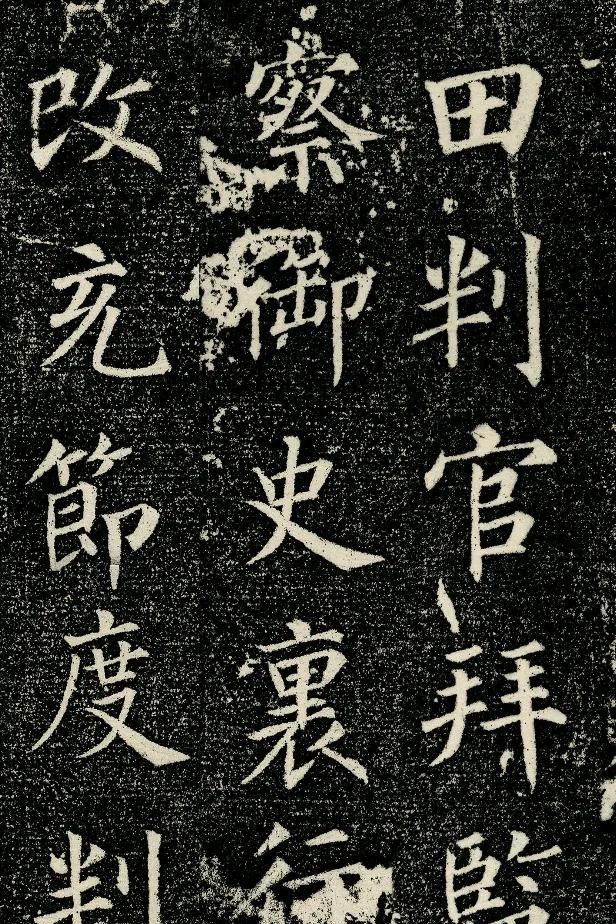 田判官拜監
察御史裏行
改充節度判